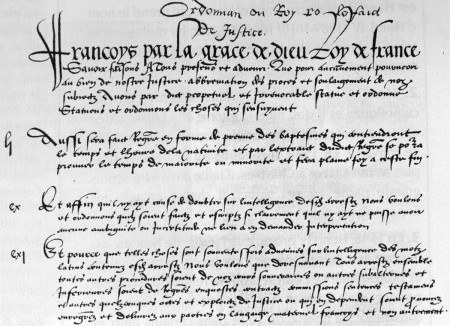 Ordonnan du Roy
de Justice.
Francoys par la grace de dieu Roy de france
Savoir faisons A Tous presens et advenir Que pour aucunement pourveoir
au bien de nostre Justice abbreviation des proces et soulagement de noz
subiectz Avons par dict perpetuel et Irrevocable statue et ordonne
Statuons et ordonnons les choses qui sensuyvent
Aussi sera faict Regre en forme de preuve des baptesmes qui contiendront
le temps et lheure de la nativite et par lextraict dudict Regre se pora
prouver le temps de maiorite ou minorite et fera plaine foy a ceste fin.
cx Et affin quil ny ayt cause de doubter sur lintelligence desdz arrestz Nous voulons
et ordonnons quilz soient faictz et escriptz si clairement quil ny ayt ne puisse avoir
aucune ambiguite ou Incertitude ne lieu a en demander Interpretation
cxi Et pource que telles choses sont souventesfois advenues sur lintelligence des motz
latins contenuz esdz arrestz Nous voulons que doresnavant Tous arrestz ensemble
toutes autres procedures soient de noz cours souveraines ou autres subalternes et
Inferieures soient de Regres enquestes contractz commissions sentences testamens
et autres quelzconques actes et exploictz de Justice ou qui en dependent soient prononcez
enregrez et delivrez aux parties en langaige maternel francoys et non autrement.